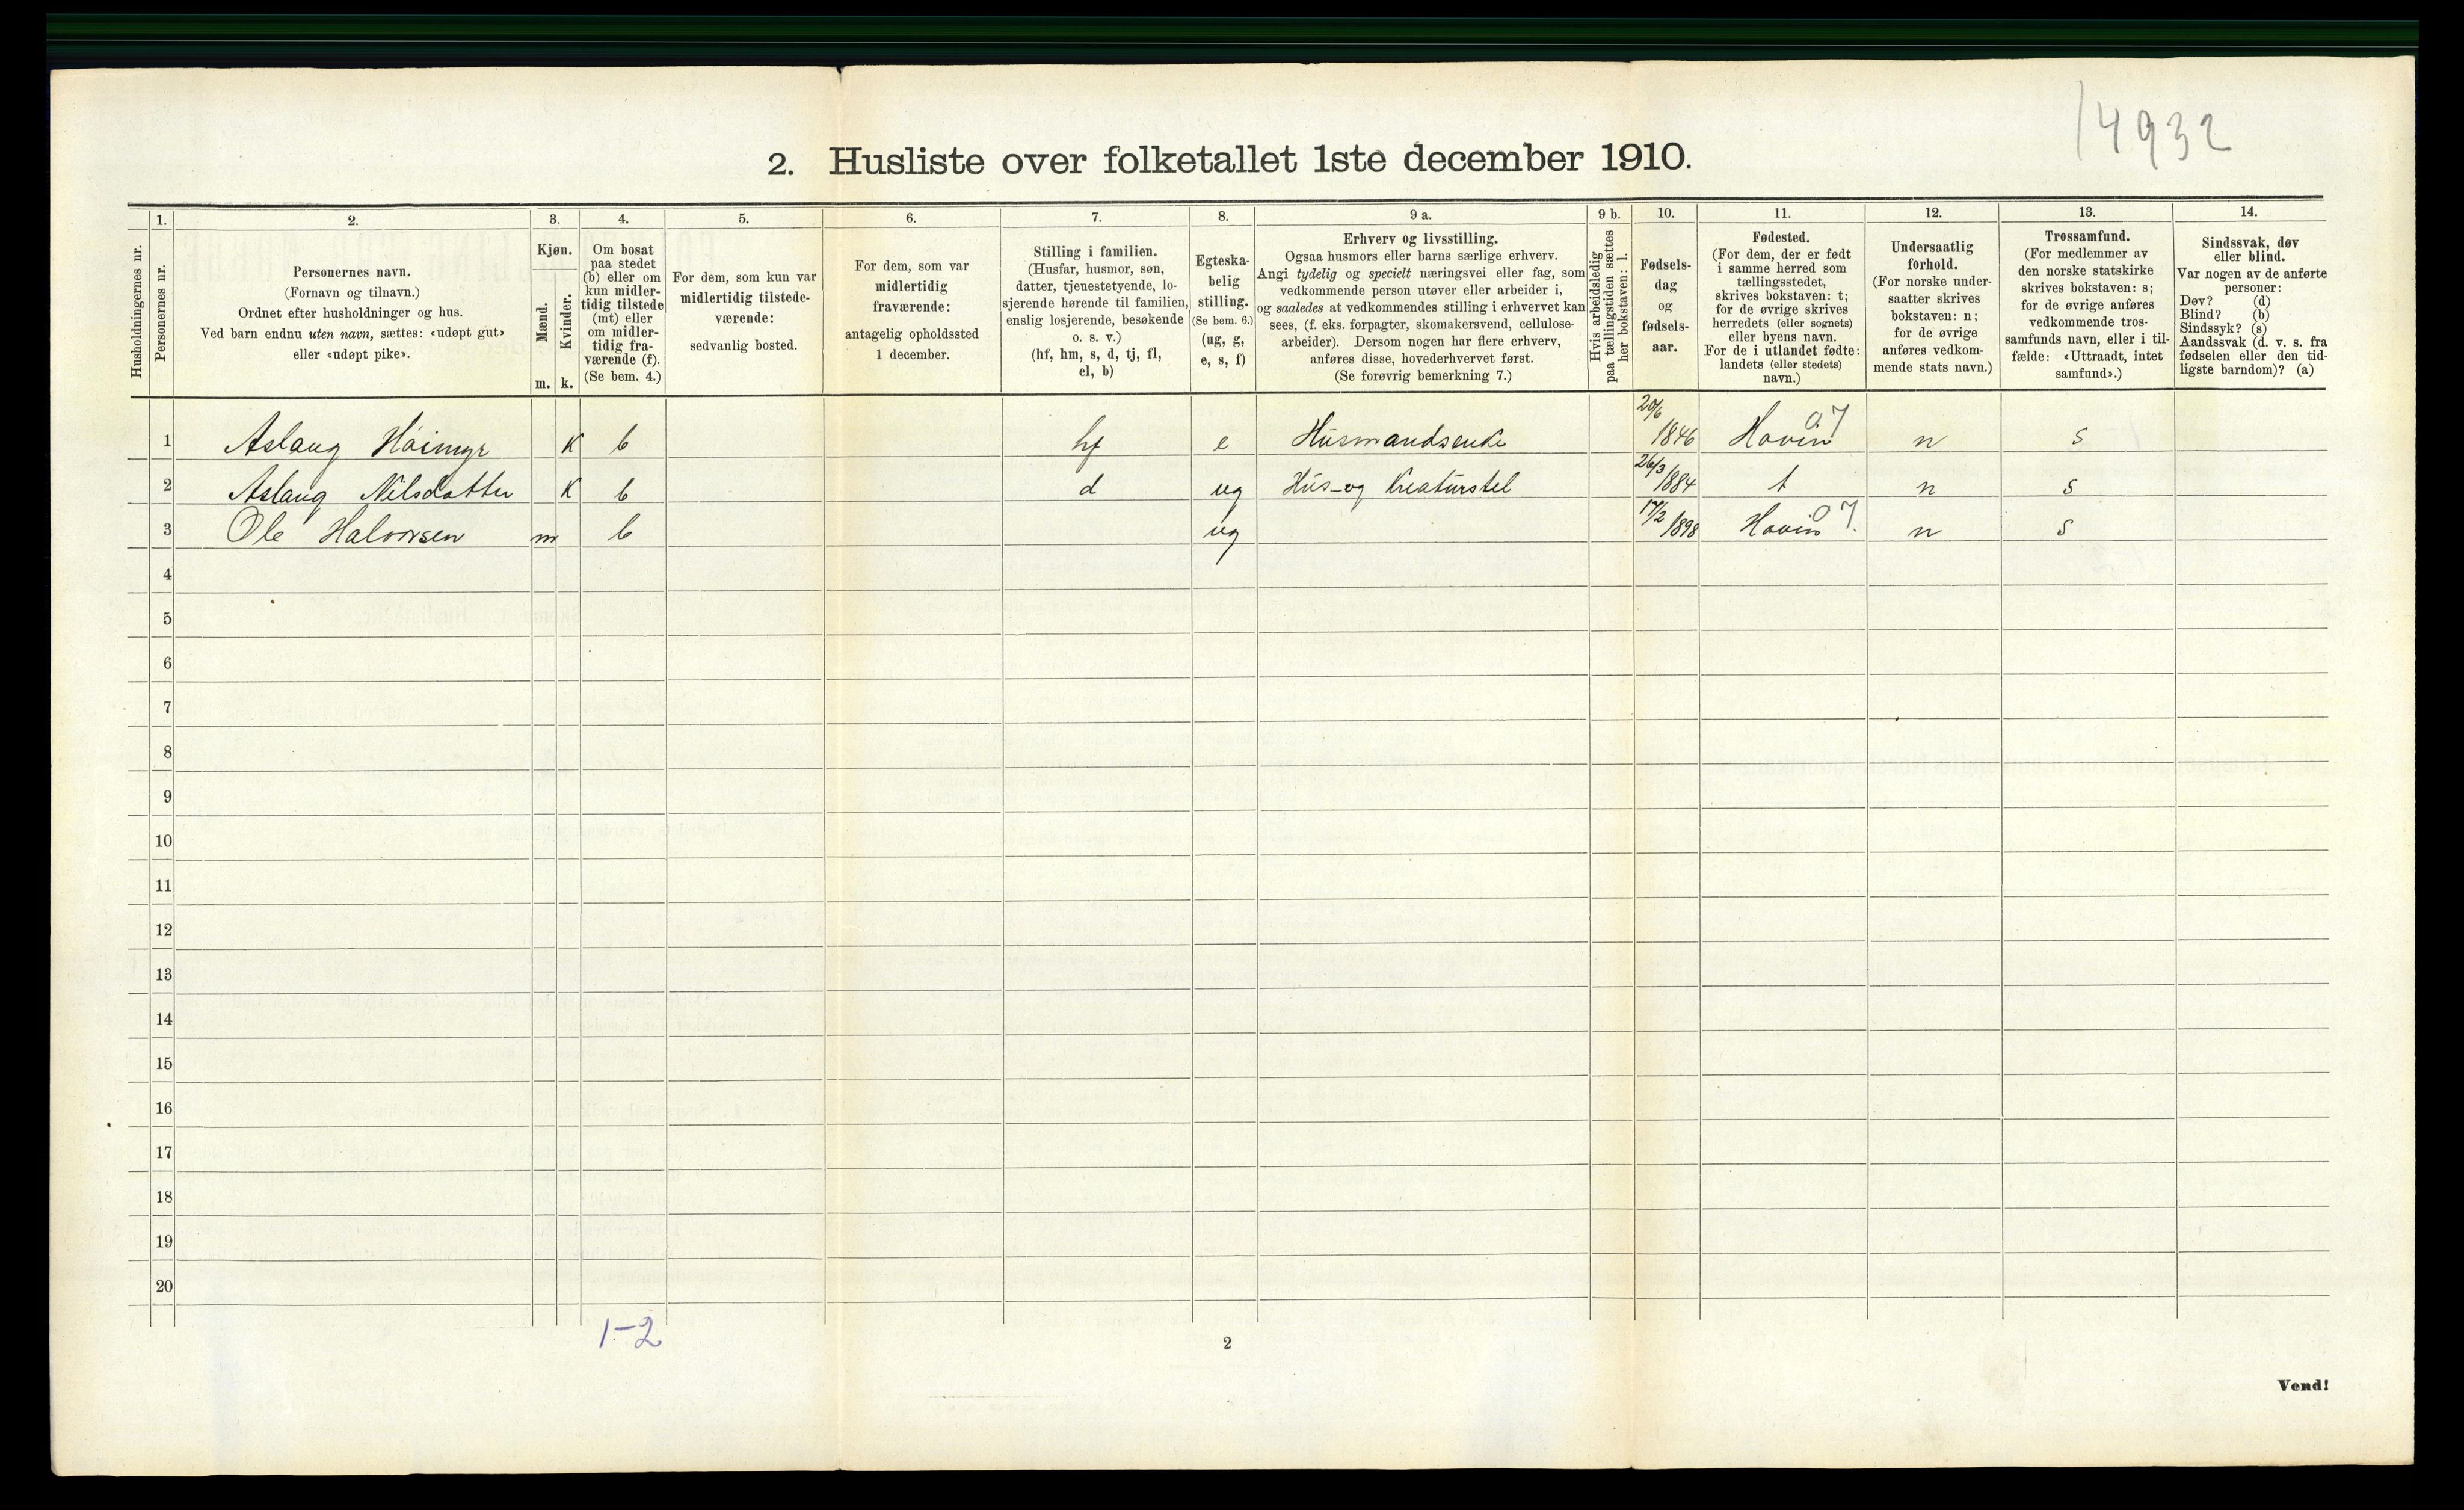 14932
2. Husliste over folketallet 1ste december 1910.
1. 2. 3. 4. 5. 6. 7. 8. 9 a. 9 b. 10. 11. 12. 13. 14.
Husholdningernes nr.
Personernes nr.
Personernes navn.
(Fornavn og tilnavn.)
Ordnet efter husholdninger og hus.
Ved barn endnu uten navn, sættes: «udøpt gut»
eller «udøpt pike».
Kjøn.
Mænd.
Kvinder.
m. k.
Om bosat
paa stedet
(b) eller om
kun midler-
tidig tilstede
(mt) eller
om midler-
tidig fra-
værende (f).
(Se bem. 4.)
For dem, som kun var
midlertidig tilstede-
værende:
sedvanlig bosted.
For dem, som var
midlertidig
fraværende:
antagelig opholdssted
1 december.
Stilling i familien.
(Husfar, husmor, søn,
datter, tjenestetyende, lo-
sjerende hørende til familien,
enslig losjerende, besøkende
o. s. v.)
(hf, hm, s, d, tj, fl,
el, b)
Egteska-
belig
stilling.
(Se bem. 6.)
(ug, g,
e, s, f)
Erhverv og livsstilling.
Ogsaa husmors eller barns særlige erhverv.
Angi tydelig og specielt næringsvei eller fag, som
vedkommende person utøver eller arbeider i,
og saaledes at vedkommendes stilling i erhvervet kan
sees, (f. eks. forpagter, skomakersvend, cellulose-
arbeider). Dersom nogen har flere erhverv,
anføres disse, hovederhvervet først.
(Se forøvrig bemerkning 7.)
Hvis arbeidsledig
paa tællingstiden sættes
her bokstaven: l.
Fødsels-
dag
og
fødsels-
aar.
Fødested.
(For dem, der er født
i samme herred som
tællingsstedet,
skrives bokstaven: t;
for de øvrige skrives
herredets (eller sognets)
eller byens navn.
For de i utlandet fødte:
landets (eller stedets)
navn.)
Undersaatlig
forhold.
(For norske under-
saatter skrives
bokstaven: n;
for de øvrige
anføres vedkom-
mende stats navn.)
Trossamfund.
(For medlemmer av
den norske statskirke
skrives bokstaven: s;
for de øvrige anføres
vedkommende tros-
samfunds navn, eller i til-
fælde: «Uttraadt, intet
samfund».)
Sindssvak, døv
eller blind.
Var nogen av de anførte
personer:
Døv? (d)
Blind? (b)
Sindssyk? (s)
Aandssvak (d. v. s. fra
fødselen eller den tid-
ligste barndom)? (a)
1 Aslaug Höimyr K b hf e Husmandsenke 20/6 1846 Hovin 07 n s
2 Aslaug Nilsdatter K b d ug Hus-og Kreaturstel 26/3 1884 t n s
3 Ole Halvorsen m b ug 17/2 1898 Hovin 07. n s
4
5
6
7
8
9
10
11
12
13
14
15
16
17
18
19
20
1-2
2
Vend!